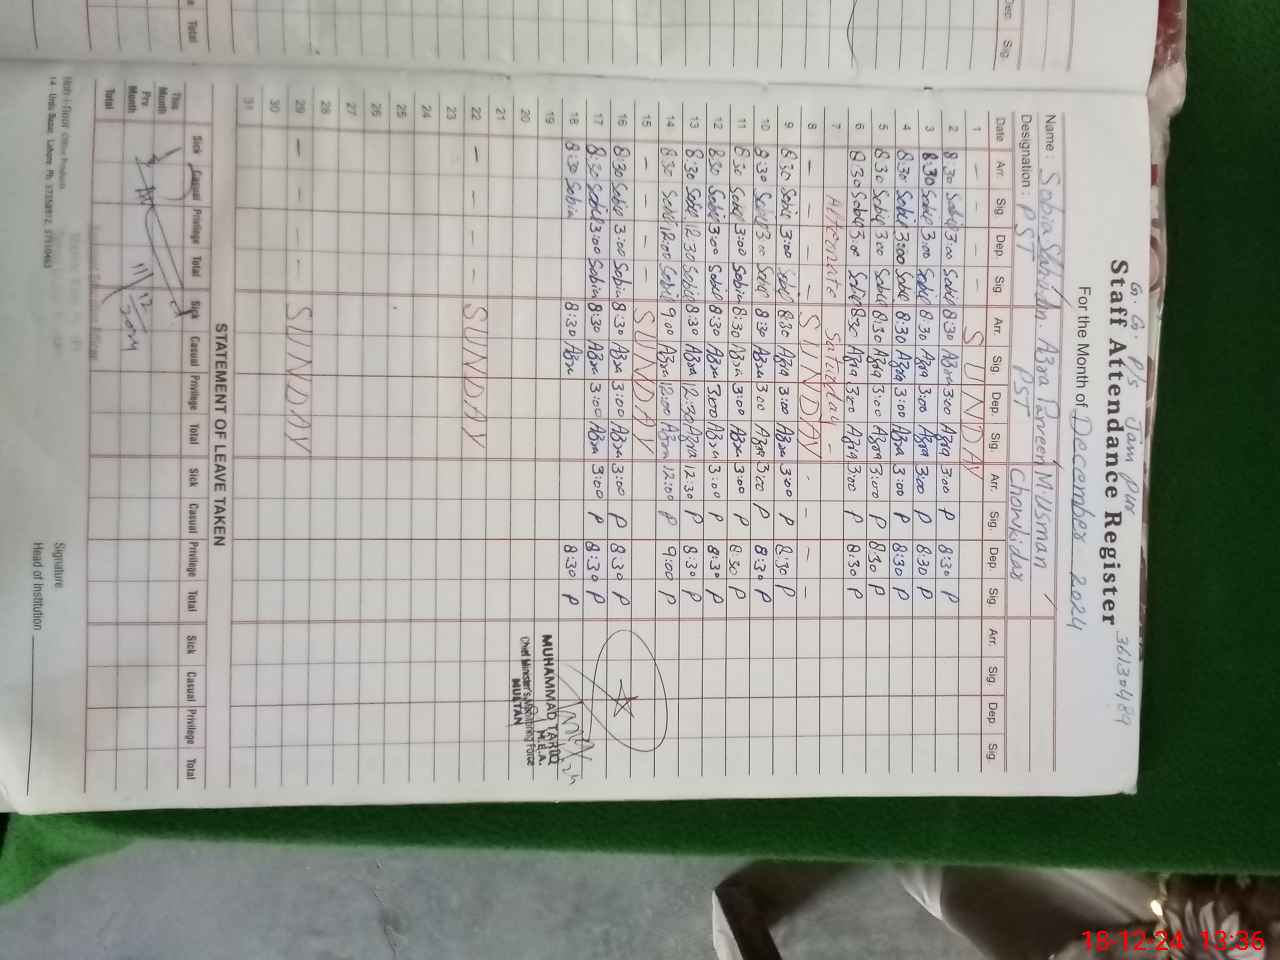 G. G. P/S Jam Pur 36130489
Staff Attendance Register
For the Month of December 2024
Name : Sobia Azra Parveen M. Usman
Designation : PST PST Chowkidar
Date Arr. Sig. Dep. Sig. Arr. Sig. Dep. Sig. Arr. Sig. Dep. Sig. Arr. Sig. Dep Sig.
1 – – SUNDAY
2 8:30 Sobia 3:00 Sobia 8:30 Azra 3:00 Azra 3:00 P 8:30 P
3 8:30 Sobia 3:00 Sobia 8:30 Azra 3:00 Azra 3:00 P 8:30 P
4 8:30 Sobia 3:00 Sobia 8:30 Azra 3:00 Azra 3:00 P 8:30 P
5 8:30 Sobia 3:00 Sobia 8:30 Azra 3:00 Azra 3:00 P 8:30 P
6 8:30 Sobia 3:00 Sobia 8:30 Azra 3:00 Azra 3:00 P 8:30 P
7 Alternate Saturday –
8 – – – – SUNDAY - – – –
9 8:30 Sobia 3:00 Sobia 8:30 Azra 3:00 Azra 3:00 P 8:30 P
10 8:30 Sobia 3:00 Sobia 8:30 Azra 3:00 Azra 3:00 P 8:30 P
11 8:30 Sobia 3:00 Sobia 8:30 Azra 3:00 Azra 3:00 P 8:30 P
12 8:30 Sobia 3:00 Sobia 8:30 Azra 3:00 Azra 3:00 P 8:30 P
13 8:30 Sobia 12:30 Sobia 8:30 Azra 12:30 Azra 12:30 P 8:30 P
14 8:30 Sobia 12:00 Sobia 9:00 Azra 12:00 Azra 12:00 P 9:00 P
15 – – – – SUNDAY
16 8:30 Sobia 3:00 Sobia 8:30 Azra 3:00 Azra 3:00 P 8:30 P
17 8:30 Sobia 3:00 Sobia 8:30 Azra 3:00 Azra 3:00 P 8:30 P
18 8:30 Sobia 8:30 Azra 8:30 P
19
20
21
22 – – – – SUNDAY
23
24
25
26
27
28
29 – – – – SUNDAY
30
31
MUHAMMAD TARIQ
M.E.A.
Chief Minister's Monitoring Force
MULTAN
STATEMENT OF LEAVE TAKEN
Sick Casual Privilege Total Sick Casual Privilege Total Sick Casual Privilege Total Sick Casual Privilege Total
This Month
Prv. Month
Total
Signature
Head of Institution
14 - Urdu Bazar, Lahore Ph:
Dep. Sig.
Total
18-12-24 13:36